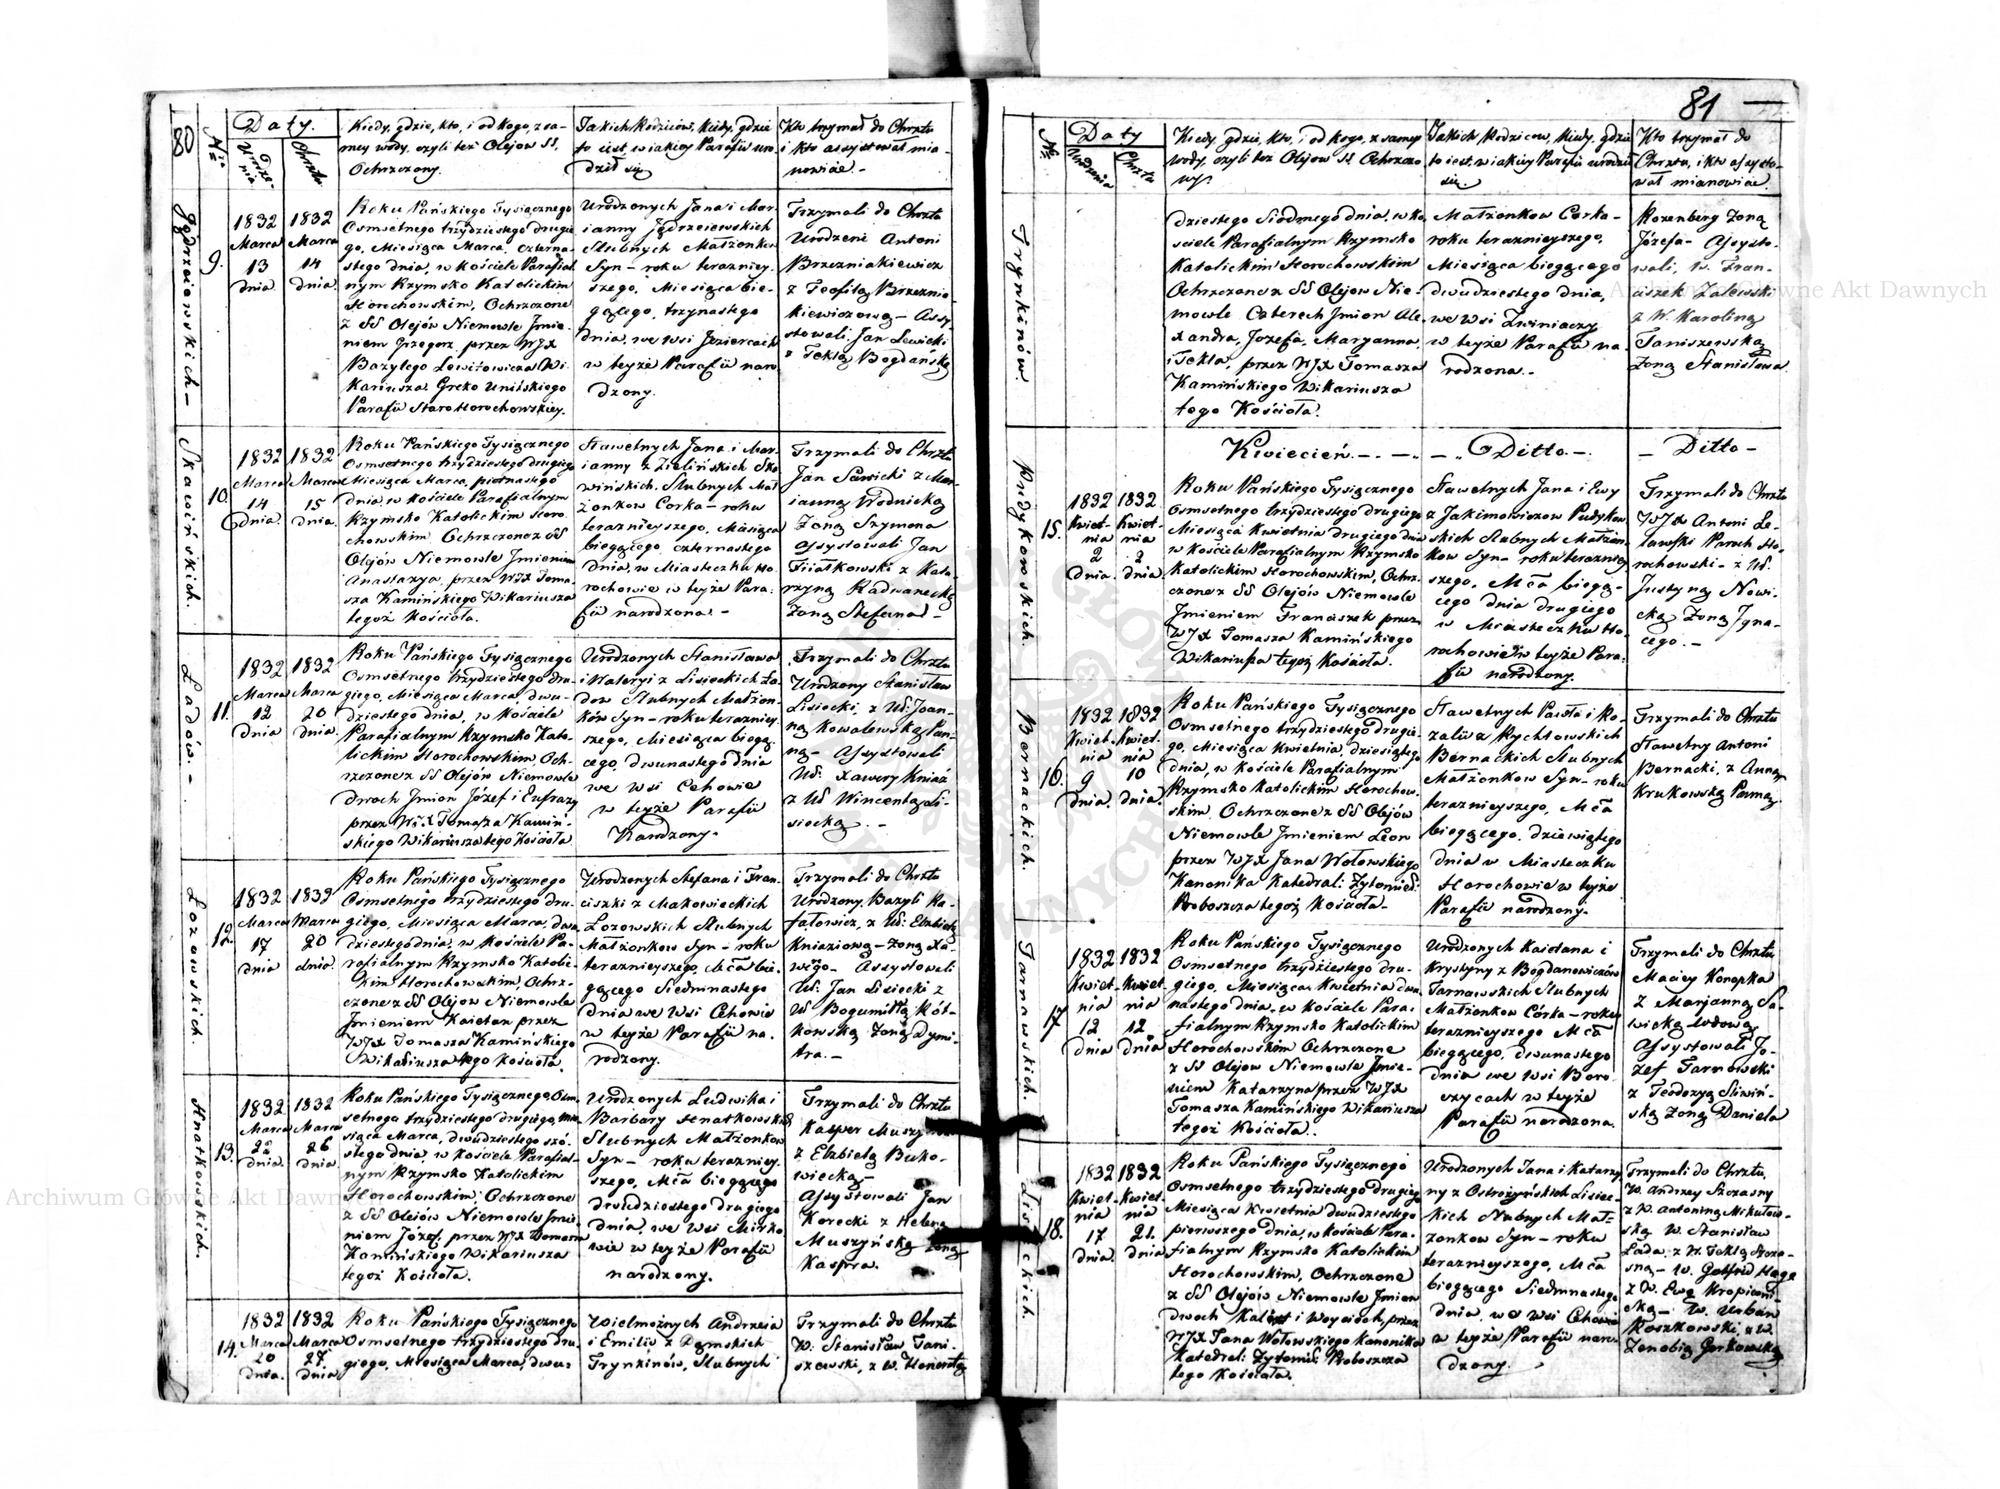 80
Nro
Daty.
Urodzenia
Chrztu
Kiedy, gdzie, kto, i od kogo, z samey wody, czyli też Olejow SS.
Ochrzczony.
Jakich Rodziców, kiedy, gdzie
to iest w iakiey Parafii uro-
dził się
Kto trzymał do Chrztu
i kto assystował mia-
nowicie.-
Jędrzeiewskich-
9.
1832
Marca
13
dnia
1832
Marca
14
dnia
Roku Pańskiego Tysiącznego
Osmsetnego trzydziestego drugie-
go, Miesiąca Marca, czterna-
stego dnia, w Kościele Parafial-
nym Rzymsko Katolickim
Horochowskim, Ochrzczone
z SS Olejów Niemowle Jmie-
niem Grzegorz, przez WJX
Bazylego Lewitowicza Wi-
kariusza Greko Unitskiego
Parafii Staro Horochowskiey.
Urodzonych Jana i Mar-
ianny Jędrzeiewskich
Slubnych Małżonkow
Syn - roku terazniey-
szego, Miesiąca bie-
gącego, trzynastego
dnia, we wsi Jeziercach
w teyże Parafii naro-
dzony.
Trzymali do Chrztu
Urodzeni Antoni
Brzezniakiewicz
z Teofilą Brzeznia-
kiewiczową - Assy-
stowali: Jan Lewicki
z Teklą Bogdańską
Skawińskich.
10.
1832
Marca
14
dnia.
1832
Marca
15
dnia.
Roku Pańskiego Tysiącznego
Osmsetnego trzydziestego drugiego
Miesiąca Marca, piętnastego
dnia, w Kościele Parafialnym
Rzymsko Katolickim Horo-
chowskim Ochrzczone z SS
Olejów Niemowle Jmieniem
Anastazya, przez WJX Toma-
sza Kamińskiego Wikariusza
tegoż Kościoła.
Sławetnych Jana i Mar-
ianny z Zielińskich Ska-
wińskich. Slubnych Mał-
żonkow Corka - roku
terazniey szego, Miesiąca
biegącego czternastego
dnia, w Miasteczku Ho-
rochowie w teyże Para-
fii narodzona. -
Trzymali do Chrztu
Jan Sawicki z Mar-
ianną Wodnicką
Zoną Szymona
Assystowali Jan
Fiiałkowski z Kata-
rzyną Radwanecką
Zoną Stefana -
Ladów. -
11.
1832
Marca
12
dnia
1832
Marca
20
dnia.
Roku Pańskiego Tysiącznego
Osmsetnego trzydziestego dru-
giego, Miesiąca Marca, dwu-
dziestego dnia, w Kościele
Parafialnym Rzymsko Kato-
lickim Horochowskim, Och-
rzczone z SS Olejów Niemowle
dwoch Jmion Józef i Eufrazy
przez WJX Tomasza Kamiń-
skiego Wikariusza tego Kościoła
Urodzonych Stanisława
i Waleryi z Lisieckich La-
dow Slubnych Małżon-
ków Syn - roku terazniey-
szego, Miesiąca biegą-
cego, dwunastego dnia
we wsi Cehowie
w teyże Parafii
Narodzony.
Trzymali do Chrztu
Urodzony Stanisław
Lisiecki, z Ur: Joan-
ną Kowalewską Pan-
ną - Assystowali
Ur: Xawery Kniaź
z Ur Wincentą Li-
siecką. -
Lozowskich.
12.
1832
Marca
17
dnia
1832
Marca
20
dnia.
Roku Pańskiego Tysiącznego
Osmsetnego trzydziestego dru-
giego, Miesiąca Marca, dwu-
dziestego dnia, w Kościele Pa-
rafialnym Rzymsko Katolic-
kim Horochowskim, Ochrz-
czone z SS Olejow Niemowle
Jmieniem Kaietan przez
WJX Tomasza Kamińskiego
Wikariusza tego Kościoła.
Urodzonych Stefana i Fran-
ciszki z Makowieckich
Lozowskich Slubnych
Małżonkow Syn - roku
terazniey szego, Mca bie-
gącego Siedmnastego
dnia we wsi Cehowie
w teyże Parafii na-
rodzony.
Trzymali do Chrztu
Urodzony Bazyli Ra-
fałowicz, z Ur. Elzbietą
Kniaziową - Zoną Xa-
wergo - Assystowali
Ur. Jan Lisiecki z
Ur Bogumiłą Kot-
kowską Zoną Dymi-
tra. -
Hnatkowskich.
13.
1832
Marca
22
dnia.
1832
Marca
26
dnia.
Roku Pańskiego Tysiącznego Osm-
setnego trzydziestego drugiego, Mie-
siąca Marca, dwudziestego szó-
stego dnia, w Kościele Parafial-
nym Rzymsko Katolickim
Horochowskim, Ochrzczone
z SS Olejów Niemowle Jmie-
niem Józef, przez WJX Tomasza
Kamińskiego Wikariusza
tegoż Kościoła.
Urodzonych Ludwika i
Barbary Hnatkowskich
Slubnych Małżonkow
Syn - roku terazniey-
szego, Mca biegącego
dwudziestego drugiego
dnia, we Wsi Mirko-
wie w teyże Parafii
narodzony.
Trzymali do Chrztu
Kasper
z Elzbietą Buko-
wiecką -
Assystowali Jan
Korecki z Heleną
Muszyńską Zoną
Kaspra.
14.
1832
Marca
20
dnia.
1832
Marca
27
dnia
Roku Pańskiego Tysiącznego
Osmsetnego trzydziestego dru-
giego, Miesiąca Marca, dwu-
Wielmożnych Andrzeia
i Emilii z Demskich
Trynkinów, Slubnych
Trzymali do Chrztu
W. Stanisław Tani-
szewski, z W. Honoratą
81
Nro
Daty
Urodzenia
Chrztu
Kiedy, gdzie, kto, i od kogo, z samey
wody, czyli też Olejow SS Ochrzczo-
ny.
Jakich Rodzicow, kiedy, gdzie
to iest, w iakiey Parafii urodził
się.
Kto trzymał do
Chrztu, i kto assysto-
wał mianowicie.
Trynkinów.
dziestego Siodmego dnia, w Ko-
ściele Parafialnym Rzymsko
Katolickim Horochowskim
Ochrzczone z SS Olejow Nie-
mowle Czterech Jmion Ale-
xandra, Jozefa, Maryanna
i Tekla, przez WJX Tomasza
Kamińskiego Wikariusza
tego Kościoła.
Małżonkow Corka -
roku terazniey szego,
Miesiąca biegącego
dwudziestego dnia,
we wsi Zwiniaczy
w teyże Parafii na-
rodzona. -
Rozenberg Zoną
Józefa - Assysto-
wali, W. Fran-
ciszek Zalewski
z W. Karoliną
Taniszewską
Zoną Stanisława.
Kwiecień. -
- " Ditto -
- Ditto -
Pudykowskich.
15.
1832
Kwiet-
nia
2
dnia.
1832.
Kwiet-
nia
2
dnia.
Roku Pańskiego Tysiącznego
Osmsetnego trzydziestego drugiego
Miesiąca Kwietnia drugiego dnia
w Kościele Parafialnym Rzymsko
Katolickim Horochowskim, Ochrz-
czone z SS Olejów Niemowle
Jmieniem Franciszek przez
WJX Tomasza Kamińskiego
Wikariusza tegoż Kościoła.
Sławetnych Jana i Ewy
z Jakimowiczow Pudykow-
skich Slubnych Małżon-
kow Syn - roku terazniey-
szego, Mca biegą-
cego dnia drugiego
w Miasteczku Ho-
rochowie w teyże Para-
fii narodzony.
Trzymali do Chrztu
WJX Antoni Le-
Paroch Ho-
rochowski - z Ur.
Justyną Nowi-
cką Zoną Jgna-
cego. -
Bernackich.
16.
1832
Kwiet-
nia
9
dnia.
1832
Kwiet-
nia
10
dnia.
Roku Pańskiego Tysiącznego
Osmsetnego trzydziestego drugie-
go, Miesiąca Kwietnia, dziesiątego
dnia, w Kościele Parafialnym
Rzymsko Katolickim Horochow-
skim, Ochrzczone z SS Olejów
Niemowle Jmieniem Leon
przez WJX Jana Wołowskiego
Kanonika Katedral: Zytomirs:
Proboszcza tegoż Kościoła -
Sławetnych Pawła i Ro-
zalii z Rychtowskich
Bernackich Slubnych
Małżonkow Syn - roku
terazniey szego, Mca
biegącego, dziewiątego
dnia w Miasteczku
Horochowie w teyże
Parafii narodzony.
Trzymali do Chrztu
Sławetny Antoni
Bernacki, z Anną
Krukowską Panną.
Tarnawskich.
17
1832
Kwiet-
nia
12
dnia
1832
Kwiet-
nia
12.
dnia
Roku Pańskiego Tysiącznego
Osmsetnego trzydziestego dru-
giego, Miesiąca Kwietnia dwu-
nastego dnia, w Kościele Para-
fialnym Rzymsko Katolickim
Horochowskim Ochrzczone
z SS Olejow Niemowle Jmie-
niem Katarzyna przez WJX
Tomasza Kamińskiego Wikariusza
tegoż Kościoła.
Urodzonych Kaietana i
Krystyny z Bogdanowiczów
Tarnawskich Slubnych
Małżonkow Córka - roku
terazniey szego Mca
biegącego, dwunastego
dnia we wsi Boro-
czycach w teyże
Parafii narodzona.
Trzymali do Chrztu
Maciey Konopka
z Marjanną Sa-
wicką wdową
Assystowali Jo-
zef Tarnowski
z Teodozyą Sliwiń-
ską Zoną Daniela
Lisieckich.
18.
1832
Kwiet-
nia
17
dnia
1832
Kwiet-
nia
21.
dnia
Roku Pańskiego Tysiącznego
Osmsetnego trzydziestego drugiego
Miesiąca Kwietnia dwudziestego
pierwszego dnia, w Kościele Para-
fialnym Rzymsko Katolickim
Horochowskim, Ochrzczone
z SS Olejów Niemowle Jmion
dwoch Kalixt i Woyciech, przez
WJX Jana Wołowskiego Kanonika
Katedral: Zytomir: Proboszcza
tego Kościoła.
Urodzonych Jana i Katarzy-
ny z Ostrożyńskich Lisiec-
kich Slubnych Mał-
zonkow Syn - roku
terazniey szego, Mca
biegącego Siedmnastego
dnia, we wsi Cehowie
w teyże Parafii naro-
dzony.
Trzymali do Chrztu,
W. Andrzey Szczasny
z W. Antoniną Mikułow-
ską W. Stanisław
Lada, z W. Teklą Szcza-
sną - W. Gotfrid Hage
z W. Ewą Kropiwni-
cką - W. Urban
Roszkowski, z W.
Zenobią Gurkowską
Archiwum Główne Akt Dawnych
Archiwum Główne Akt Dawnych